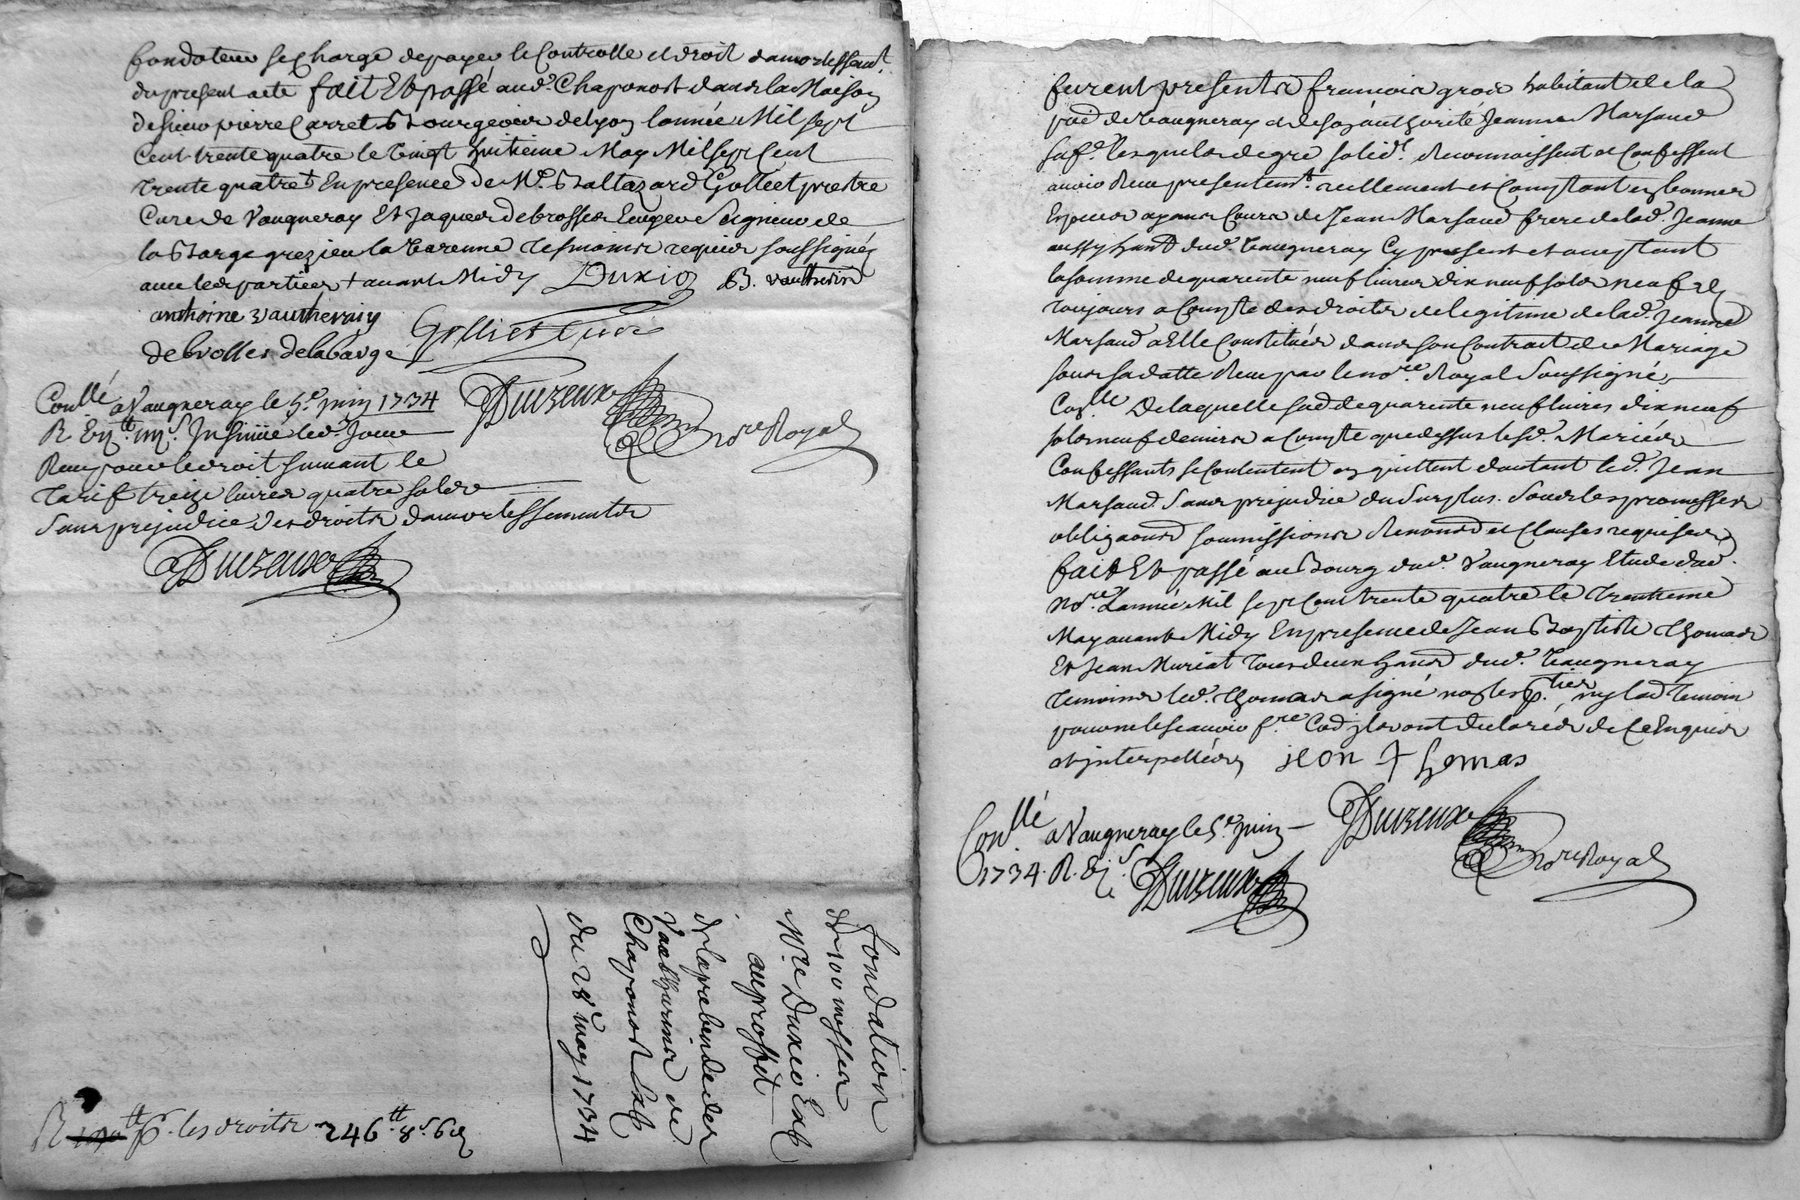 fondateur se charge de payer le Controlle et droit damortissemt.
du present acte fait Et passé aud. Chaponost dans la Maison
de sieur pierre Carret Bourgeois de lyon lannée Mil sept
Cent trente quatre le vingt huitieme May Mil sept Cent
trente quatre En presence de Mre. Baltazard Golliet prestre
Curé de Vaugneray Et Jaques debrosses Ecuyer Seigneur de
la Barge grezieu la Varenne tesmoins requis soussignés
avec les parties + avant Midy Duxio B. vautherin
anthoine vautherain
debrosses delabarge Golliet Curé
Conllé a Vaugneray le 5e juin 1734
Duizeux nore Royal
R. Insinué led. Jour
Receu pour le droit suivant le
Tarif treize livres quatre sols
sans prejudice des droits damortissements
Duizeux
fondation
de 100 messes
Mre Duxio
au proffit
de la prebende des
Vautherins de
Chaponost
du 28e may 1734
R pr. les droits 246tt. 8s. 6d
furent presents francois gros habitant de la
pcd de Vaugneray et de son authorité Jeanne Marsaud
sa fe. lesquels de gré solidt. Reconnoissent et Confessent
avoir Receu presentemt. reellement et Comptant en bonnes
Especes ayant Cours de Jean Marsaud frere de lad. Jeanne
aussy habt. dud. Vaugneray Cy present et acceptant
la somme de quarente neuf livres dix neuf sols neuf d
toujours a Compte des droits de legitime de lad. Jeanne
Marsaud a Elle Constitués dans son Contrat de Mariage
sous sa datte Receu par le nore. Royal Soussigné
De laquelle sod. de quarente neuf livres dix neuf
sols neuf deniers a Compte que dessus les d. Mariés
Confessants se Contentent en quittent dautant led. Jean
Marsaud. Sans prejudice du Surplus. Sous les promesses
obligaons soumissions Renonons et Clauses requises
fait Et passé au Bourg dud. Vaugneray Etude dud.
nore. Lannée Mil sept Cent trente quatre le Trentieme
May avant Midy En presence de Jean Baptiste Thomas
Et Jean Muriat tous deux habts dud. Vaugneray
temoins led. Thomas a signé non les pties ny lad temoin
pour ne le scavoir fre Co d ils ont declarés de Ce Enquis
et interpellés jean Thomas
Conllé a Vaugneray le 5e juin
1734. R.
Duizeux
Duizeux nore Royal